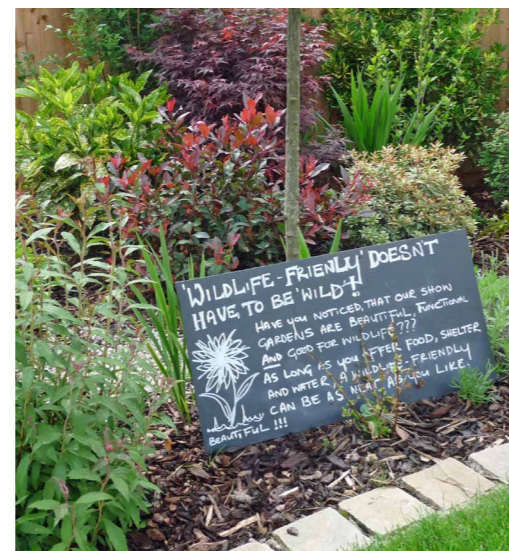 'WILDLIFE-FRIENLY' DOESN'T
HAVE TO BE 'WILD'!
HAVE YOU NOTICED, THAT OUR SHOW
GARDENS ARE BEAUTIFUL, FUNCTIONAL
AND GOOD FOR WILDLIFE???
AS LONG AS YOU OFFER FOOD, SHELTER
AND WATER, A WILDLIFE-FRIENDLY
CAN BE AS NEAT AS YOU LIKE.
BEAUTIFUL!!!